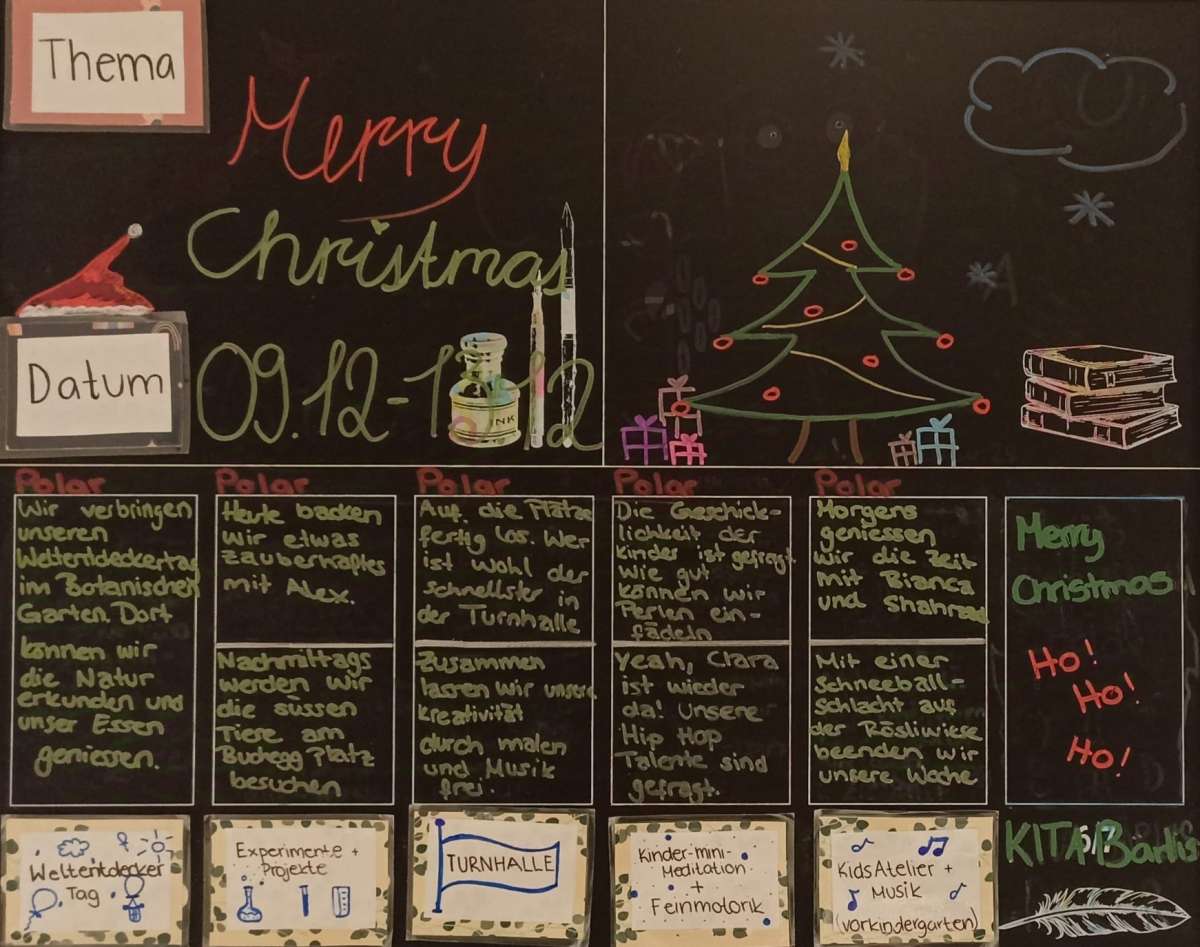 Thema
Merry
Christmas
Datum
09.12-13.12
INK
Polar
Wir verbringen
unseren
Weltentdeckertag
im Botanischen
Garten. Dort
können wir
die Natur
erkunden und
unser Essen
geniessen.
Polar
Heute backen
wir etwas
zauberhaftes
mit Alex.
Nachmittags
werden wir
die süssen
Tiere am
Buchegg Platz
besuchen
Polar
Auf die Plätze
fertig los. Wer
ist wohl der
schnellster in
der Turnhalle
Zusammen
lassen wir unsere
kreativität
durch malen
und Musik
frei.
Polar
Die Geschick-
lichkeit der
Kinder ist gefragt
Wie gut
können wir
Perlen ein-
fädeln
Yeah, Clara
ist wieder
da! Unsere
Hip Hop
Talente sind
gefragt.
Polar
Morgens
geniessen
wir die Zeit
mit Bianca
und Shahrzad
Mit einer
Schneeball-
schlacht auf
der Rösliwiese
beenden wir
unsere Woche
Merry
Christmas
Ho!
Ho!
Ho!
Weltentdecker
Tag
Experimente +
Projekte
TURNHALLE
Kinder-mini-
Meditation
+
Feinmotorik
KidsAtelier +
Musik
(vorkindergarten)
KITA Barlis